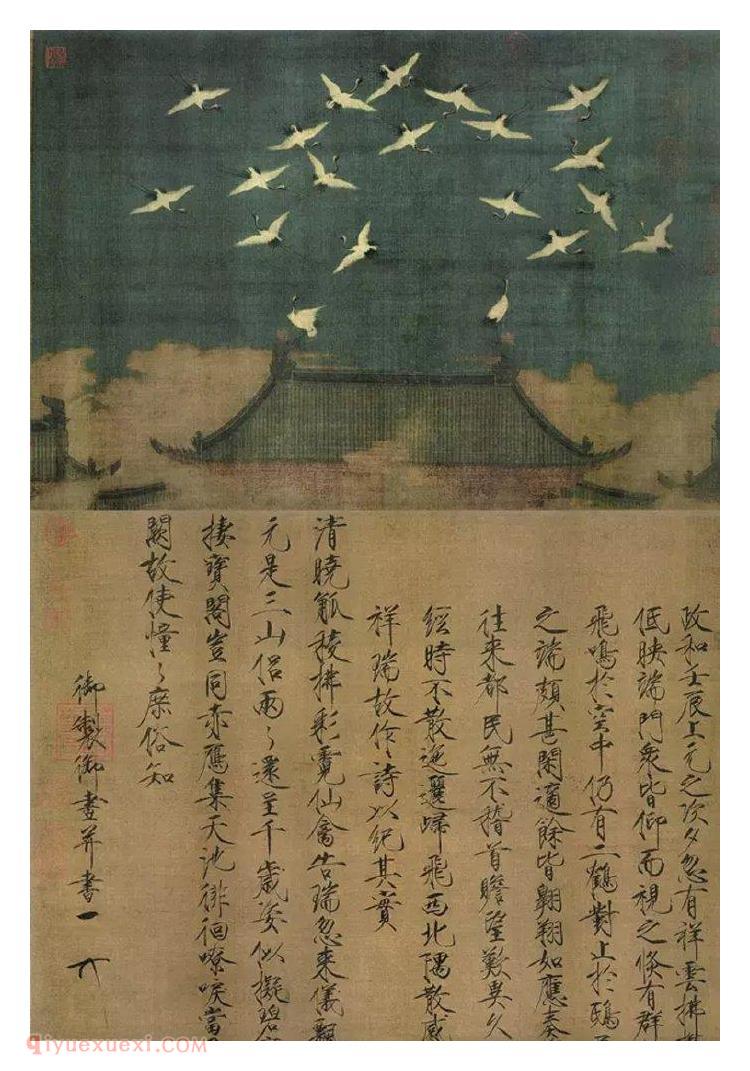 政和壬辰上元之次夕忽有祥雲拂
低映端門衆皆仰而視之倏有群
飛鳴於空中仍有二鶴對止於鴟
之端頗甚閑適餘皆翺翔如應奏
往來都民無不稽首瞻望歎異久
經時不散迤邐歸飛西北隅散感
祥瑞故作詩以紀其實
清曉觚稜拂彩霓仙禽告瑞忽來儀飄
元是三山侶兩〻還呈千歲姿似擬碧
棲寶閣豈同赤鴈集天池徘徊嘹唳當
闕故使憧〻庶俗知
御製御畫并書
qiyuexuexi.com